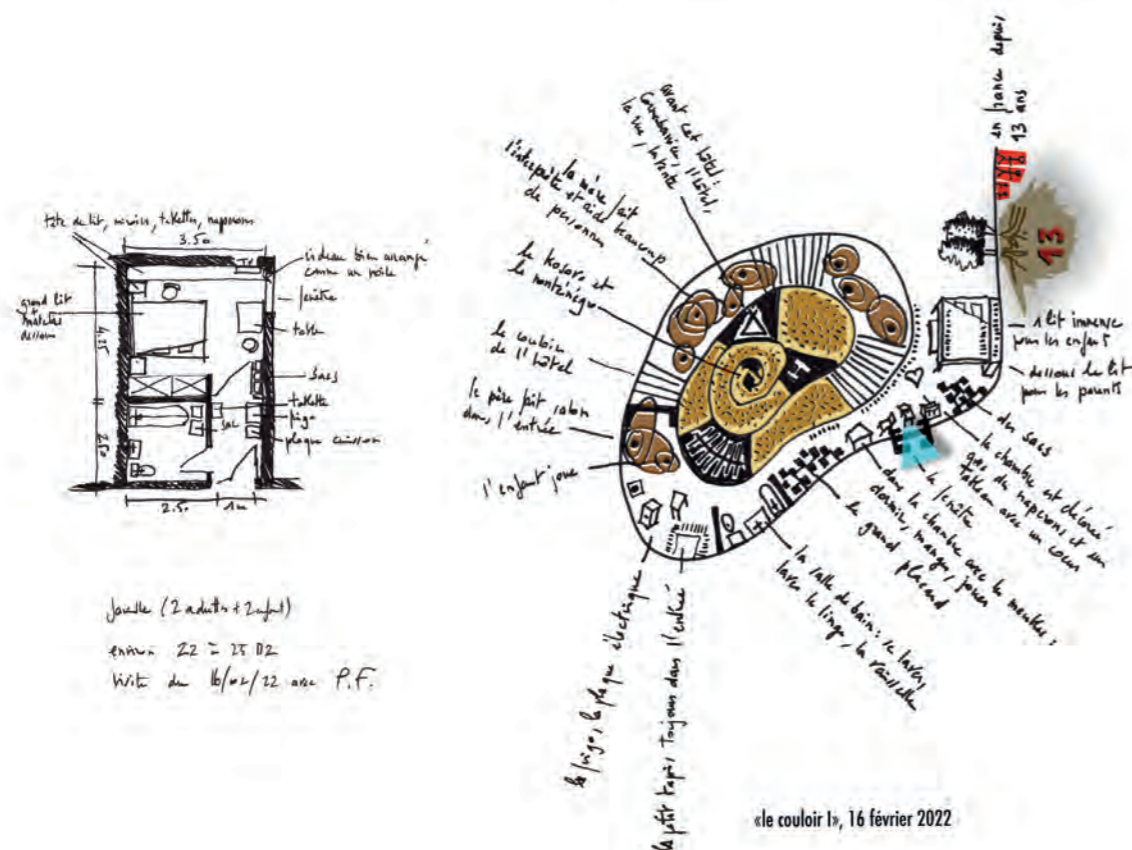 tête de lit, miroirs, tablettes, napperons
3.50
TV
rideau bien arrangé
comme un poële
fenêtre
grand lit
+
matelas
dessous
table
4.25
sacs
tablette
frigo
plaque cuisson
sac
2.50
2.50
1m
famille (2 adultes + 2 enfants)
environ 22 à 25 m2
visite du 16/02/22 avec P.F.
en france depuis
13 ans
13
avant cet hôtel :
l'hôtel,
la rue, la tente
la mère fait
l'interprète et aide beaucoup
de personnes
le kosovo et
le monténégro
le couloir
de l'hôtel
le père fait salon
dans l'entrée
l'enfant joue
le frigo, la plaque électrique
le petit tapis toujours dans l'entrée
la salle de bain : se laver,
laver le linge, la vaisselle
le grand placard
dans la chambre avec les meubles :
dormir, manger, jouer
la fenêtre
la chambre est décorée
des napperons et un
tableau avec un coeur
des sacs
1 lit immense
pour les enfants
dessous le lit
pour les parents
«le couloir I», 16 février 2022